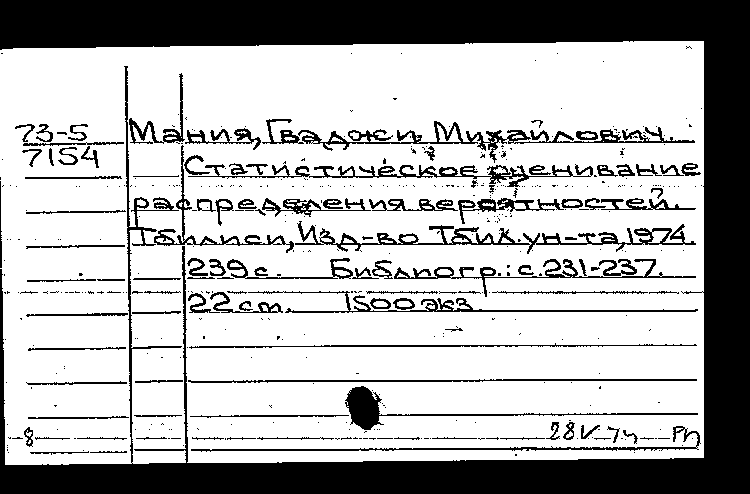 73-5 Мания, Гваджи Михайлович.
7154 Статистическое оценивание
распределения вероятностей.
Тбилиси, Изд-во Тбил. ун-та, 1974.
239 с. Библиогр.: с. 231-237.
22 cm. 1500 экз.
8 28 V 74